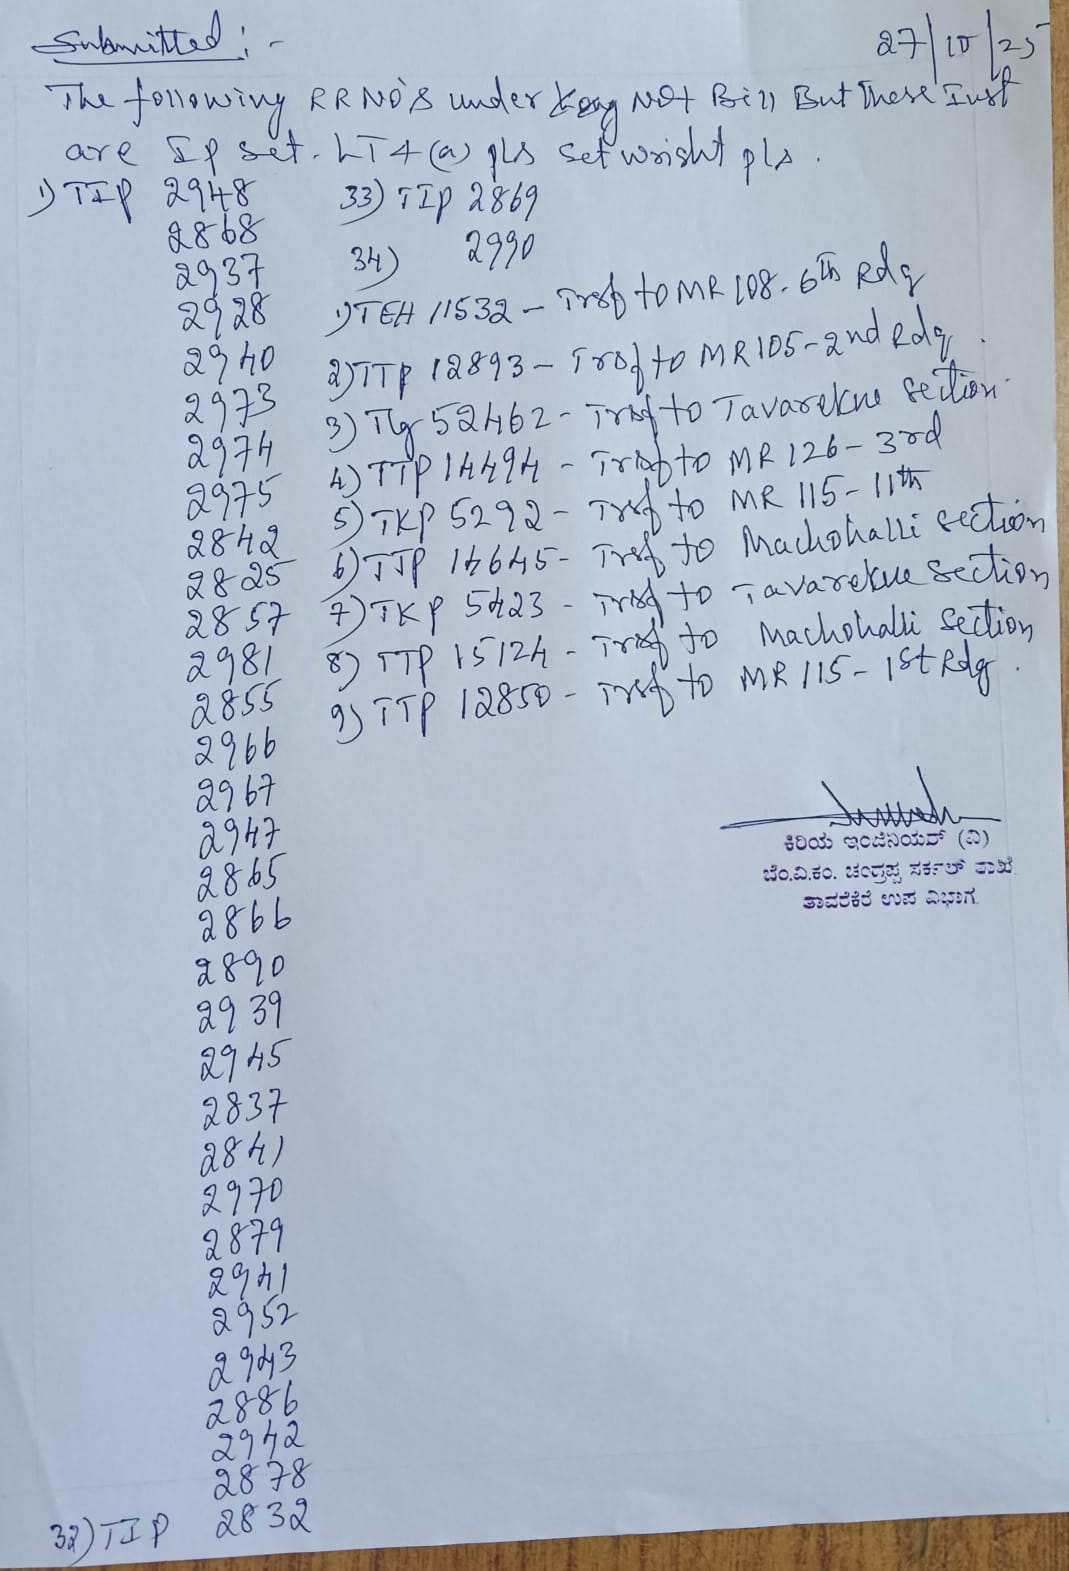 Submitted :-
27/10/25
The following RRNO'S under Long Not Bill But These Inst
are Ip set. LT4(a) pls set wright pls.
1) TIP 2948
2868
2937
2928
2940
2973
2974
2975
2842
2825
2857
2981
2855
2966
2967
2947
2865
2866
2890
2939
2945
2837
2841
2970
2879
2941
2952
2943
2886
2942
2878
32) TIP 2832
33) TIP 2869
34) 2990
1) TEH 11532 - Trsf to MR 108. 6th Rdg
2) TTP 12893 - Trsf to MR 105 - 2nd Rdg.
3) 52462 - Trsf to Tavarekue section.
4) TTP 14494 - Trsf to MR 126 - 3rd
5) TKP 5292 - Trsf to MR 115 - 11th
6) TTP 14645 - Trsf to Machohalli section
7) TKP 5423 - Trsf to Tavarekue section
8) TTP 15124 - Trsf to Machohalli section
9) TTP 12850 - Trsf to MR 115 - 1st Rdg.
ಕಿರಿಯ ಇಂಜಿನಿಯರ್ (ವಿ)
ಬೆಂ.ವಿ.ಕಂ. ಚಂದ್ರಪ್ಪ ಸರ್ಕಲ್ ಶಾಖೆ
ತಾವರೆಕೆರೆ ಉಪ ವಿಭಾಗ